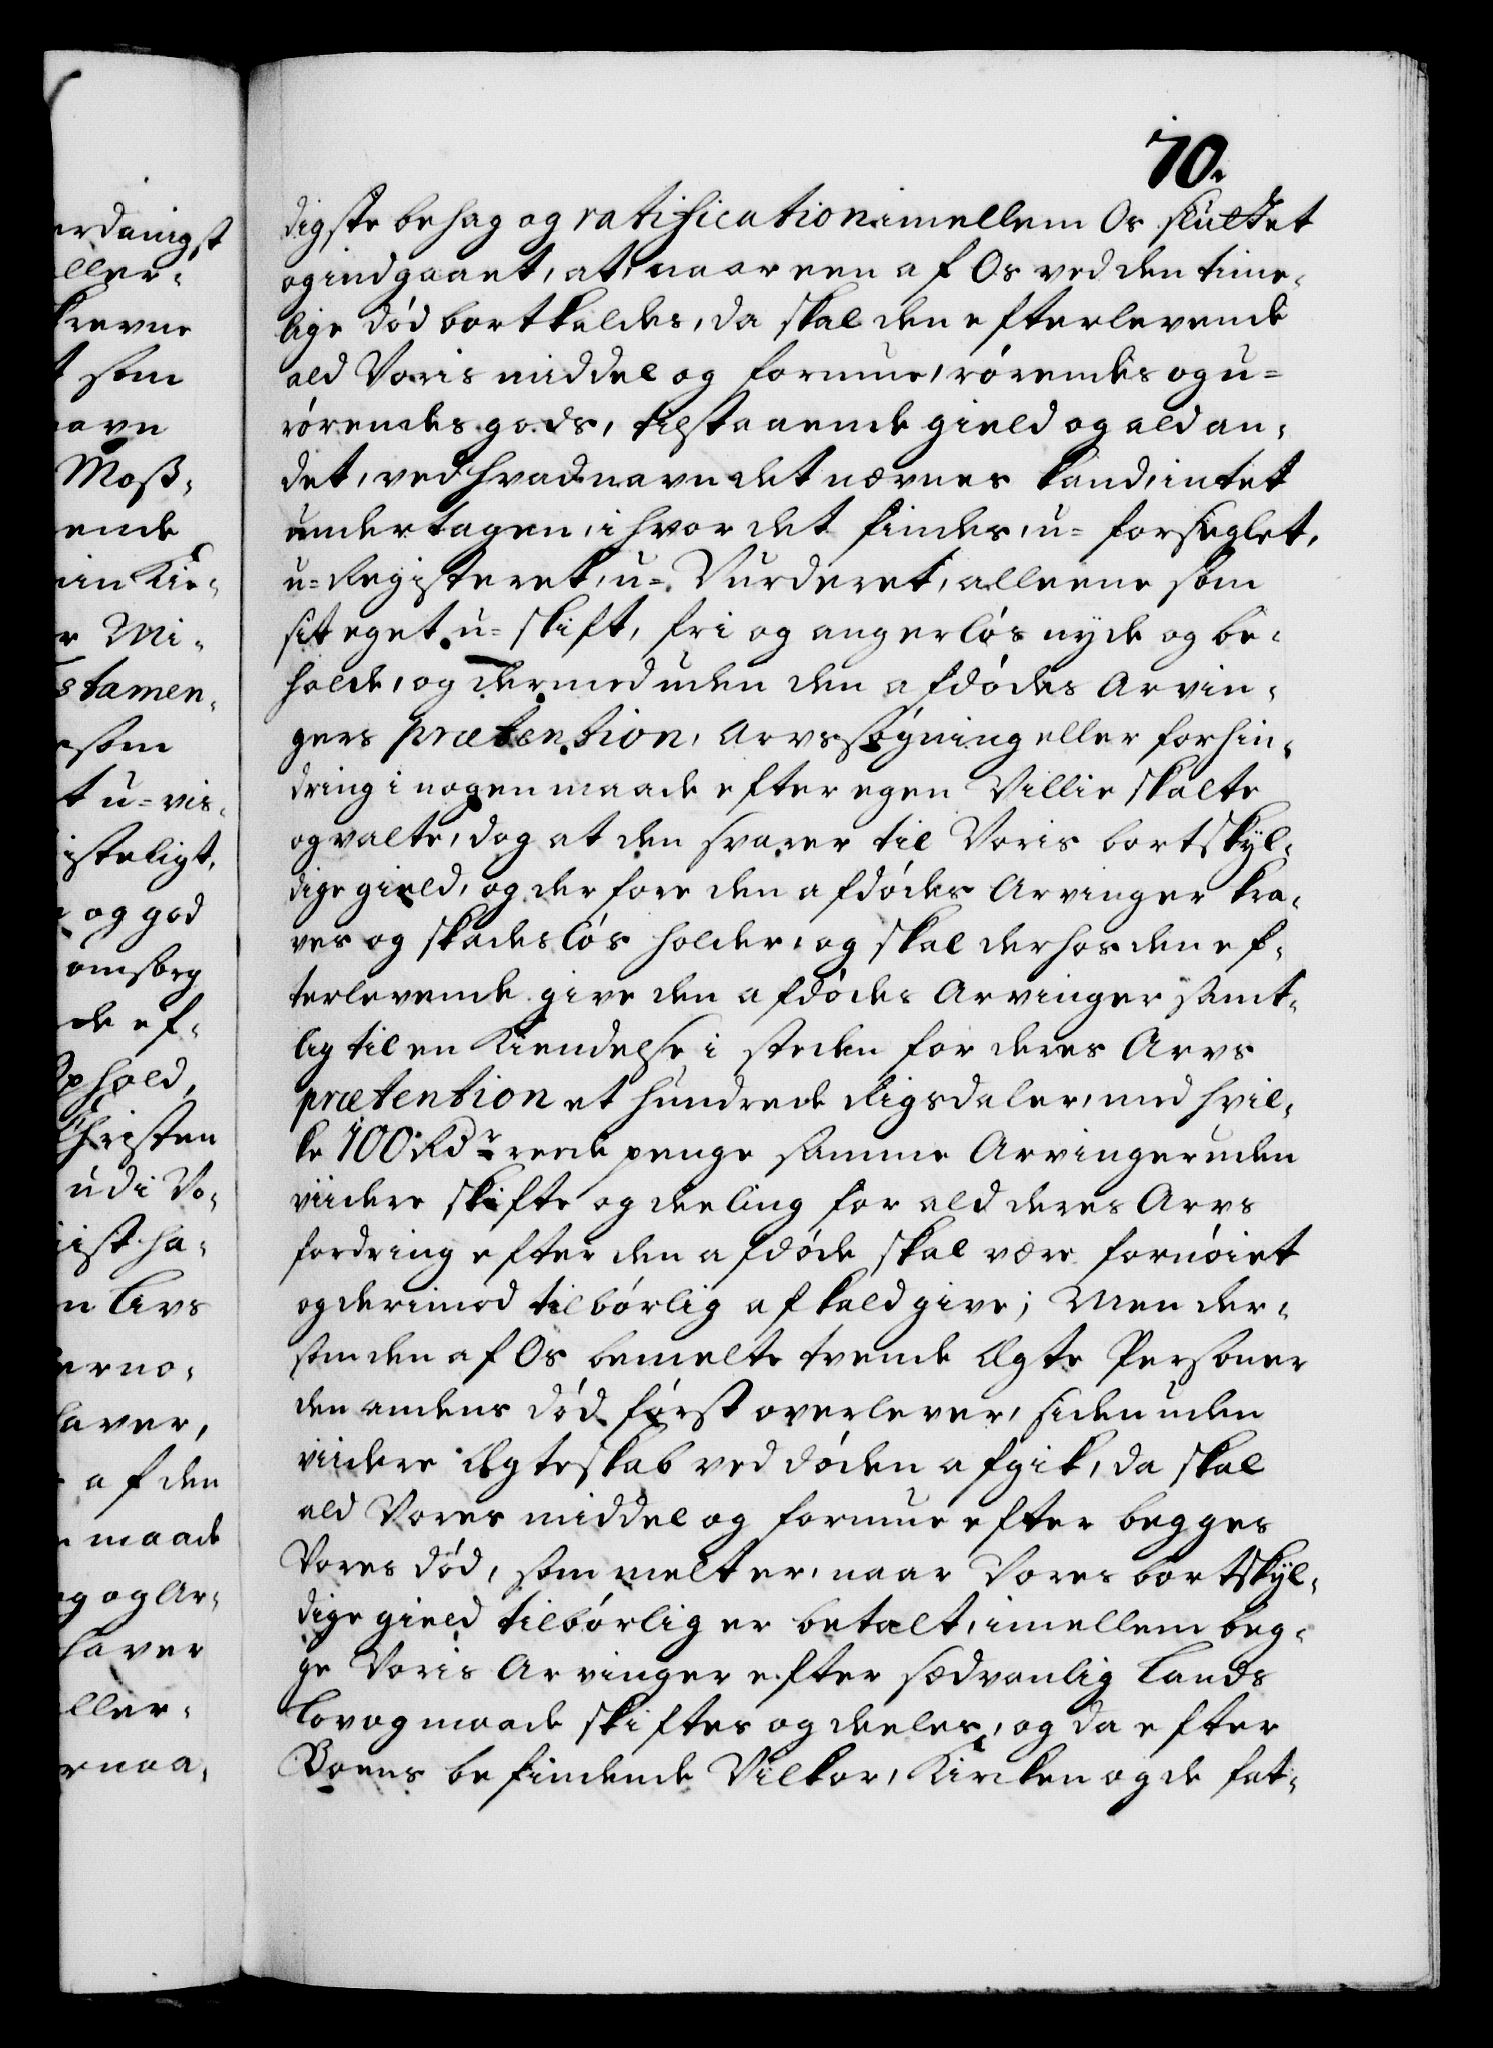 70.
digste behag og ratification imellem Os sluttet
og indgaaet, at, naar een af Os ved den time-
lige död bortkaldes, da skal den efterlevende
ald Voris middel og formue, rörendes og u-
rörendes gods, tilstaaende gield og ald an-
det, ved hvad navn det nævnes kand, intet
undertagen, i hvor det findes, u- forseglet,
u- Registeret, u- Vurderet, alleene som
sit eget u- skift, fri og angerlös nyde og be-
holde, og dermed uden den afdödes Arvin-
gers prætention, Arvssögning eller forhin-
dring i nogen maade efter egen Villie skalte
og valte, dog at den svarer til Voris bortskyl-
dige gield, og derfore den afdödes Arvinger kra-
ves og skadeslös holder, og skal derhos den ef-
terlevende give den afdödes Arvinger samt-
lig til en Kiendelse i steden for deres Arvs
prætention et hundrede Rigsdaler, med hvil-
ke 100 Rdr rede penge samme Arvinger uden
viidere skifte og deeling for ald deres Arvs
fordring efter den afdöde skal være fornöiet
og derimod tilbörlig afkald give; Men der-
som den af Os bemelte tvende Ægte Personer
den andens död först overlever, siden uden
viidere Ægteskab ved döden afgik, da skal
ald Vores middel og formue efter begges
Vores död, som melt er, naar Vores bortskyl-
dige gield tilbörlig er betalt, imellem beg-
ge Voris Arvinger efter sædvanlig Lands
Lov og maade skiftes og deeles, og da efter
Boens befindende Vilkor, Kircken og de fat-
erdanigst
ller-
krevne
som
avn
Moss-
ende
in Kie-
r Mi-
stamen-
som
t u- vis-
isteligt,
og god
omsorg
de ef-
phold,
Christen
udi Vo-
iist ha-
n Livs
erno-
aver,
af den
maade
g og Ar-
haver
ller-
rnaa-